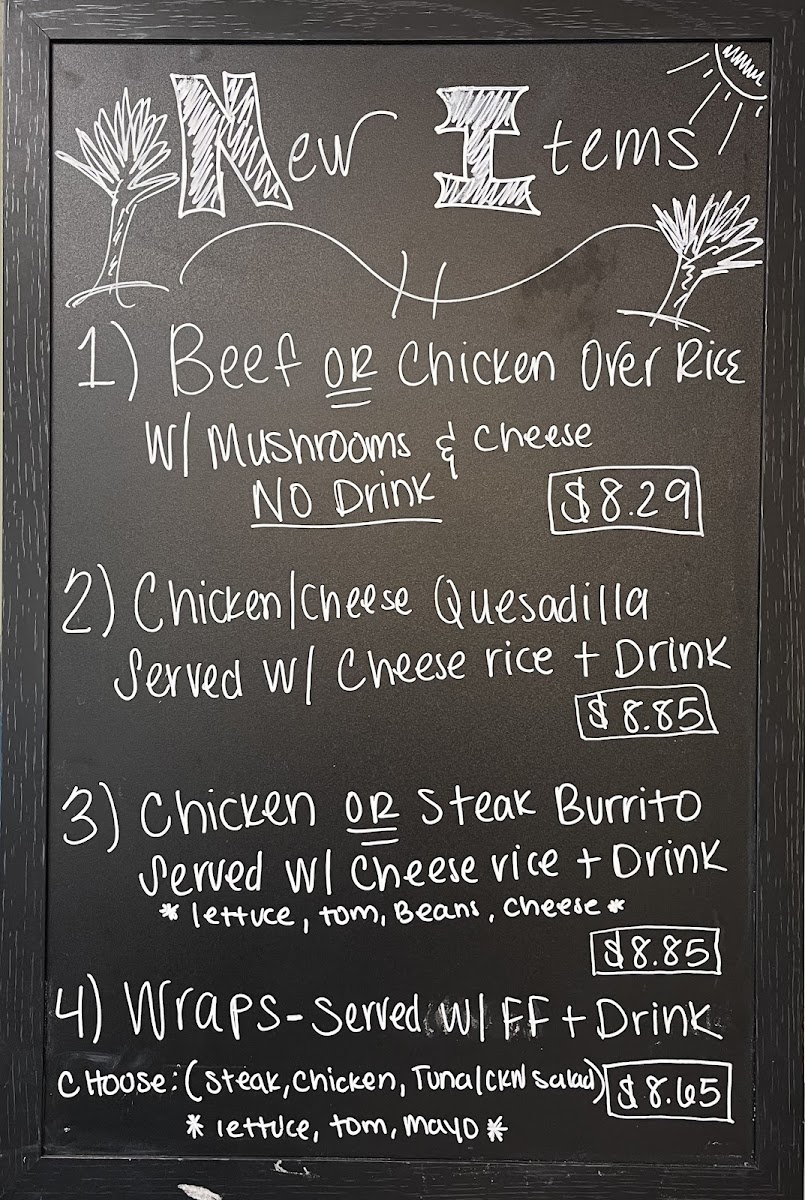 New Items
1) Beef OR Chicken Over Rice
W/ Mushrooms & Cheese
NO Drink
$8.29
2) Chicken/Cheese Quesadilla
Served W/ Cheese rice + Drink
$8.85
3) Chicken OR Steak Burrito
Served W/ Cheese rice + Drink
* lettuce, tom, Beans, Cheese *
$8.85
4) Wraps - Served W/ FF + Drink
CHOOSE: (Steak, Chicken, Tuna/CKN Salad) $8.65
* lettuce, tom, Mayo *